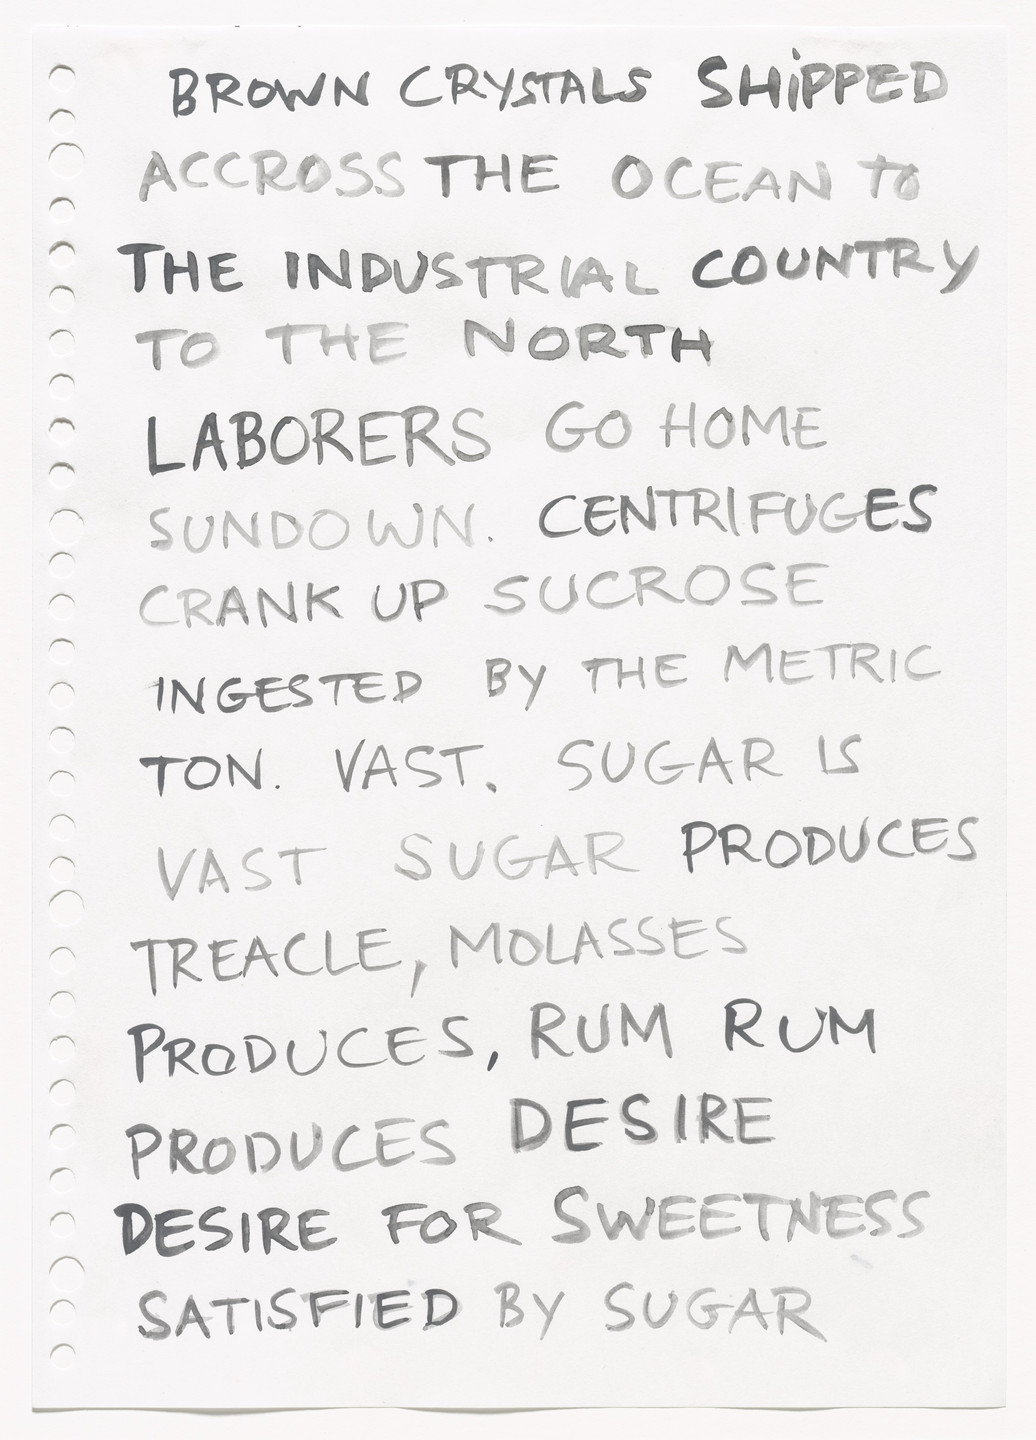 BROWN CRYSTALS SHiPPED
ACCROSS THE OCEAN To
THE INDUSTRIAL COUNTRY
TO THE NORTH
LABORERS GO HOME
SUNDOWN. CENTRIFUGES
CRANK UP SUCROSE
INGESTED BY THE METRIC
TON. VAST. SUGAR IS
VAST SUGAR PRODUCES
TREACLE, MOLASSES
PRODUCES, RUM RUM
PRODUCES DESIRE
DESIRE FOR SWEETNESS
SATISFIED BY SUGAR